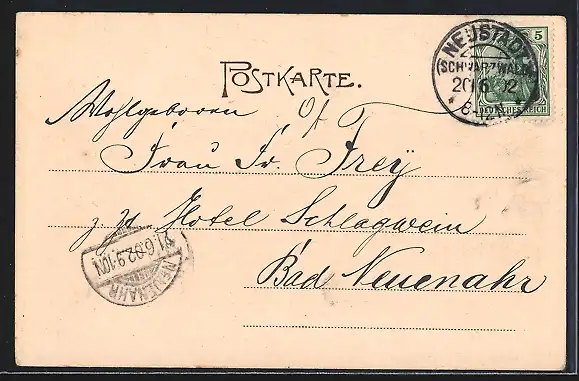 POSTKARTE.
NEUSTADT
(SCHWARZWALD)
20.6.02
8-12N.
5
DEUTSCHES REICH
Wohlgeboren
Frau Dr. Frey
z. Zt. Hotel Schlagwein
Bad Neuenahr
21.6.02.9-10V.
NEUENAHR